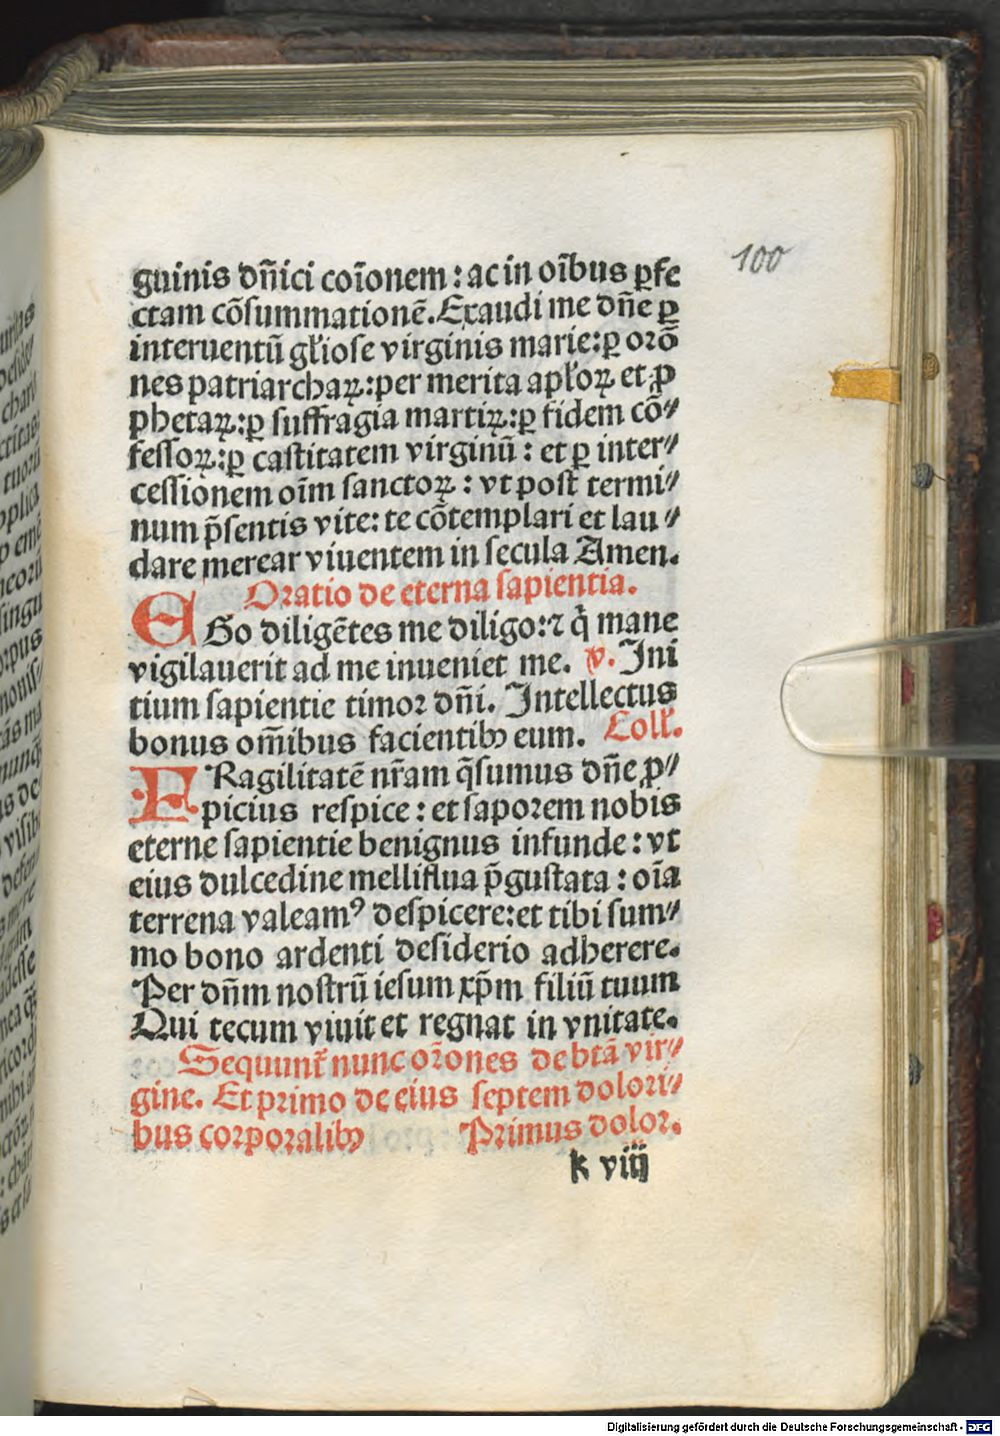 100
guinis dn̄ici coīonem : ac in oībus ꝑfe
ctam cōsummationē. Exaudi me dn̄e ꝑ
interuentū gl'iose virginis marie: ꝑ orō
nes patriarchaꝝ: per merita apl'oꝝ et ꝓ
phetaꝝ: ꝑ suffragia martiꝝ: ꝑ fidem cō⸗
fessoꝝ: ꝑ castitatem virginū : et ꝑ inter⸗
cessionem oīm sanctoꝝ : vt post termi⸗
num p̄sentis vite: te cōtemplari et lau⸗
dare merear viuentem in secula Amen.
Oratio de eterna sapientia.
EGo diligētes me diligo: ⁊ q̇ mane
vigilauerit ad me inueniet me. ℣. Ini
tium sapientie timor dn̄i. Intellectus
bonus om̄ibus facientibꝫ eum. Coll'.
FRagilitatē nr̄am q̄sumus dn̄e ꝓ⸗
picius respice : et saporem nobis
eterne sapientie benignus infunde : vt
eius dulcedine melliflua p̄gustata : oīa
terrena valeamꝰ despicere: et tibi sum⸗
mo bono ardenti desiderio adherere.
Per dn̄m nostrū iesum xp̄m filiū tuum
Qui tecum viuit et regnat in vnitate.
Sequunt̄ nunc or̄ones de btā vir⸗
gine. Et primo de eius septem dolori⸗
bus corporalibꝫ Primus dolor.
k viij
Digitalisierung gefördert durch die Deutsche Forschungsgemeinschaft - DFG